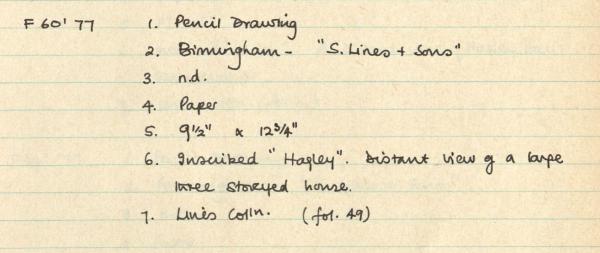 F 60' 77 1. Pencil Drawing
2. Birmingham - "S. Lines + Sons"
3. n.d.
4. Paper
5. 9½" x 12¾"
6. Inscribed "Hagley". Distant view of a large
three storeyed house.
7. Lines Colln. (fol. 49)